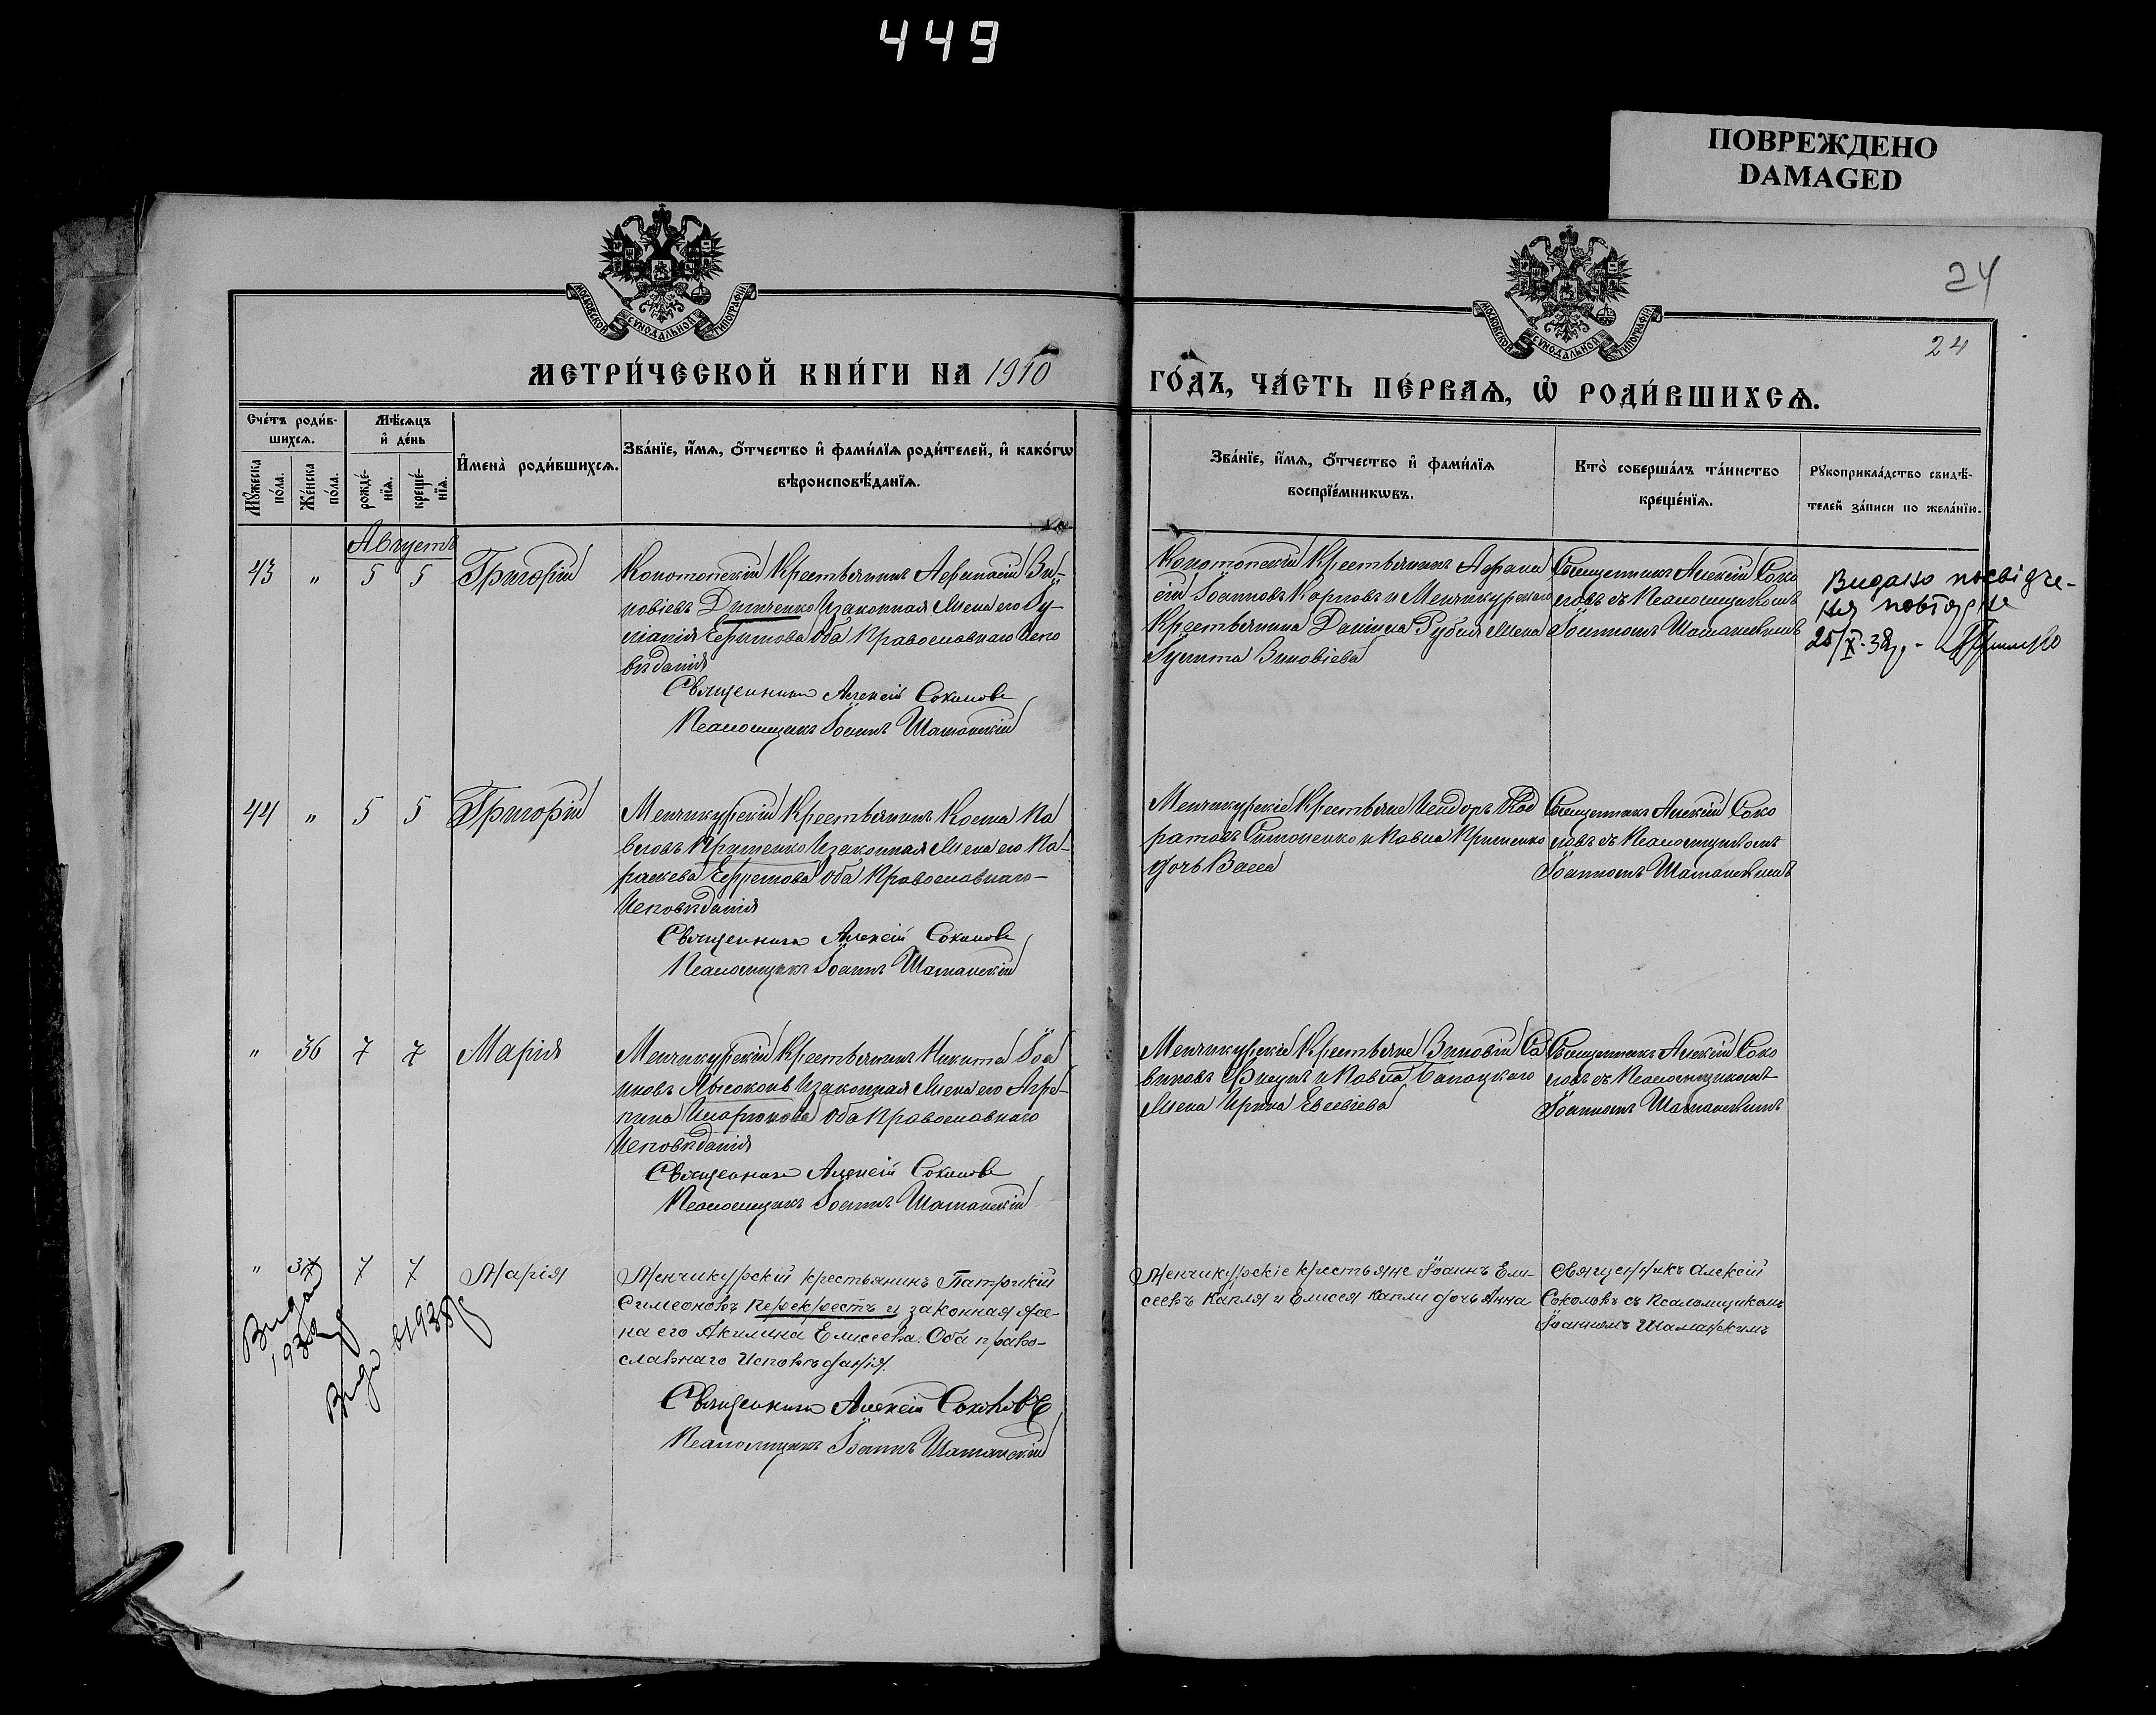 449
ПОВРЕЖДЕНО
DAMAGED
24
24
МОСКОВСКОЙ СѴНОДАЛЬНОЙ ТИПОГРАФІИ
МОСКОВСКОЙ СѴНОДАЛЬНОЙ ТИПОГРАФІИ
МЕТРИ́ЧЕСКОЙ КНИ́ГИ НА 1910
ГО́ДЪ, ЧА́СТЬ ПЕ́РВАѦ, Ѽ РОДИ́ВШИХСѦ.
Сче́тъ роди́в-
шихсѧ.
Мꙋ́жеска
по́ла.
Же́нска
по́ла.
Мѣ́сѧцъ
и҆ де́нь
рожде́-
нїѧ.
креще́-
нїѧ.
И҆мена̀ роди́вшихсѧ.
Зва́нїе, и҆́мѧ, ѻ҆́тчество и҆ фами́лїѧ роди́телей, и҆ како́гѡ
вѣроисповѣ́данїѧ.
Зва́нїе, и҆́мѧ, ѻ҆́тчество и҆ фами́лїѧ
воспрїе́мникѡвъ.
Кто̀ соверша́лъ та́инство
креще́нїѧ.
Рꙋкоприкла́дство свидѣ́-
телей за́писи по жела́нїю.
Августъ
43 " 5 5 Григорій
Конотопскій Крестьянинъ Афанасій Зи-
новіевъ Дитченко И законная Жена его Іу-
ліанія Ефимова Оба Православнаго Испо
вѣданія
Священникъ Алексій Соколовъ
Псаломщикъ Іоаннъ Шаманскій
Конотопскій Крестьянинъ Афана
сій Іоанновъ Карповъ и Менчикурскаго
Крестьянина Даніила Жена
Зиновіева
Священникъ Алексій Соко
ловъ съ Псаломщикомъ
Іоанномъ Шаманскимъ
Видано посвідче-
ня повторне
25/X-38р.-
44 " 5 5 Григорій
Менчикурскій Крестьянинъ Косма Па
вловъ Крищенко И законная Жена его Па-
раскева Ефремова Оба Православнаго-
Исповѣданія
Священникъ Алексій Соколовъ
Псаломщикъ Іоаннъ Шаманскій
Менчикурскіе Крестьяне Исидоръ Код
ратовъ Симоненко и Павла Крищенко
дочь Васса
Священникъ Алексій Соко
ловъ съ Псаломщикомъ
Іоанномъ Шаманскимъ
" 36 7 7 Марія
Менчикурскій Крестьянинъ Никита Іоа
нновъ Лысоконь И законная Жена его Агри-
пина Иларіонова Оба Православнаго
Исповѣданія
Священникъ Алексій Соколовъ
Псаломщикъ Іоаннъ Шаманскій
Менчикурскіе Крестьяне Зиновій Са
виновъ и Павла
Жена Ирина Евсевіева
Священникъ Алексій Соко
ловъ съ Псаломщикомъ
Іоанномъ Шаманскимъ
" 37 7 7 Марія
Менчикурскій крестьянинъ Патрикій
Симеоновъ Перекрестъ и законная же-
на его Акилина Елисеева. Оба право-
славнаго Исповѣданія.
Священникъ Алексій Соколовъ
Псаломщикъ Іоаннъ Шаманскій
Менчикурскіе крестьяне Іоаннъ Ели-
сеевъ Капля и Елисея Капли дочь Анна
Священникъ Алексій
Соколовъ съ Псаломщикомъ
Іоанномъ Шаманскимъ
Видан